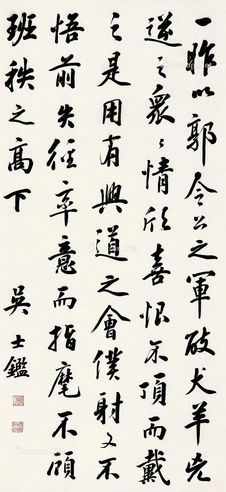 一昨以郭令公之軍破犬羊兇
逆之眾〻情欣喜恨不頂而戴
之是用有興道之會僕射又不
悟前失徑率意而指麾不顧
班秩之高下
吳士鑑